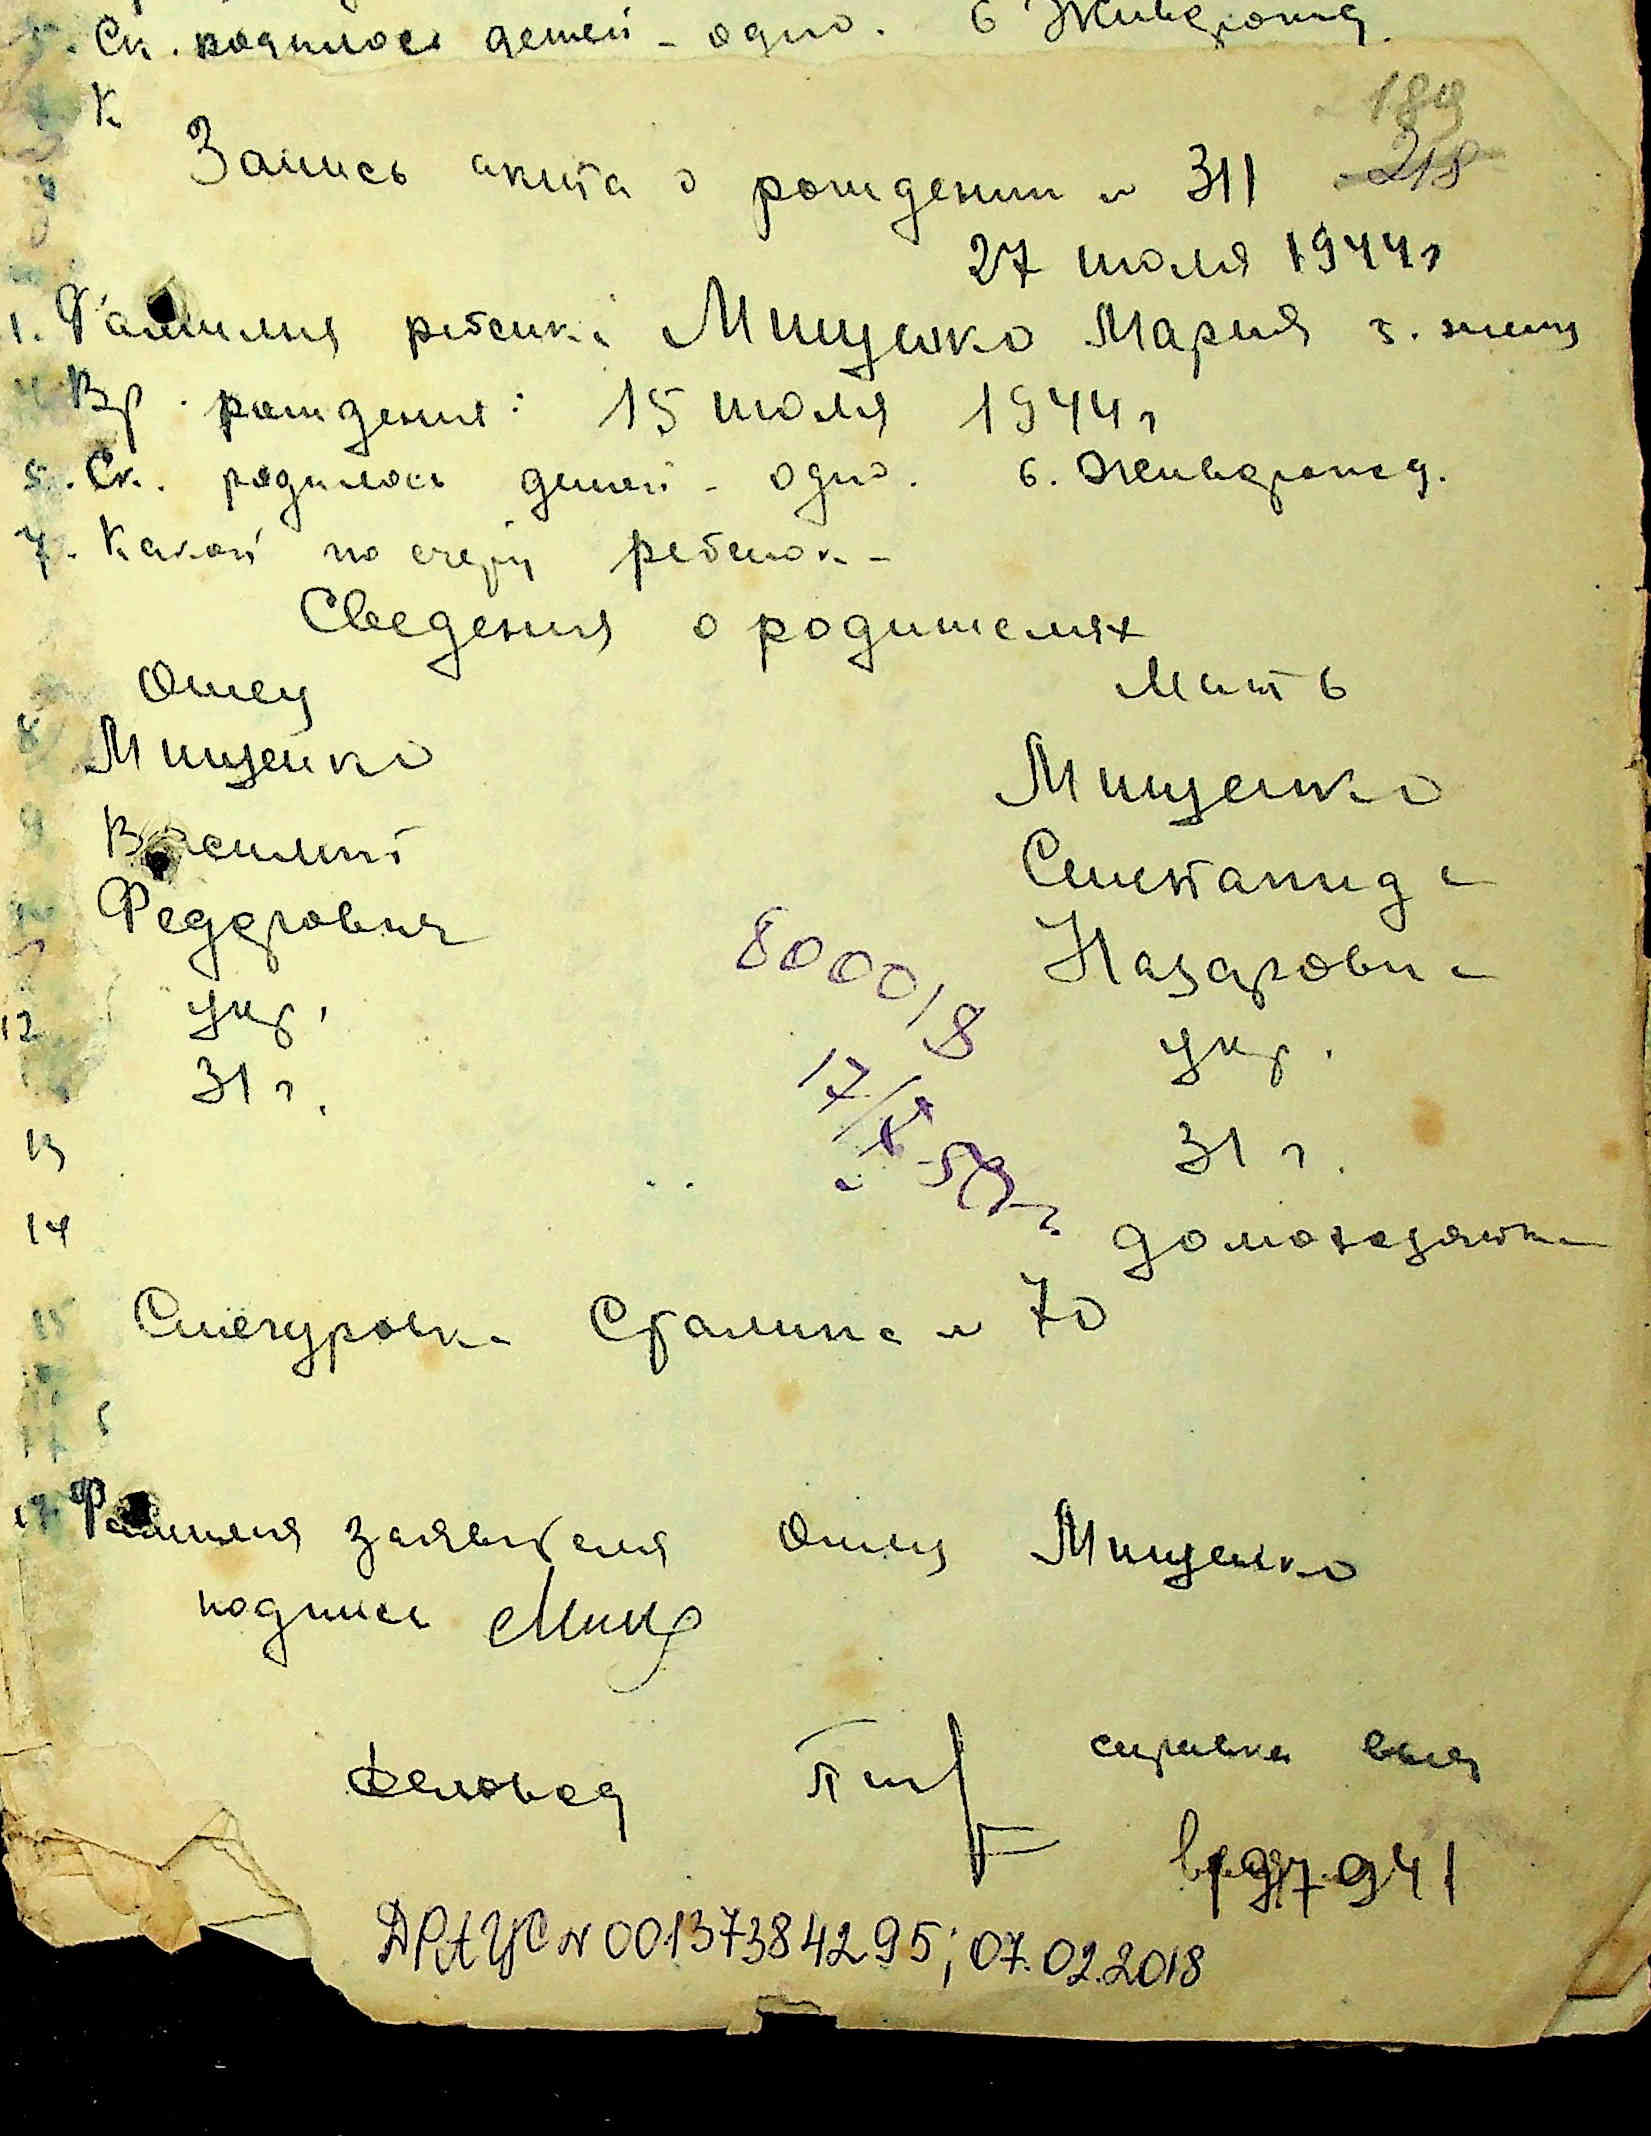 5. Ск. родилось детей - одно. 6 Живорожд.
К
189
Запись акта о рождении № 311 218
27 июля 1944 г
1. Фамилия ребенка Мищенко Мария 3. жен
4. Вр. рождения: 15 июля 1944 г
5. Ск. родилось детей - одно. 6. Живорожд.
7. Какой по счету ребенок -
Сведения о родителях
Отец Мать
8 Мищенко Мищенко
9 Василий
Федорович Назаровна
800018
12 укр. укр.
31 г. 31 г.
17/X-59 г.
13
14 домохозяйка
15 Снегуровка Сталина № 70
17
17 Фамилия заявителя Отец Мищенко
подпись Мищ
Деловод справка выд
197941
ДРАЦС N 00137384295; 07.02.2018